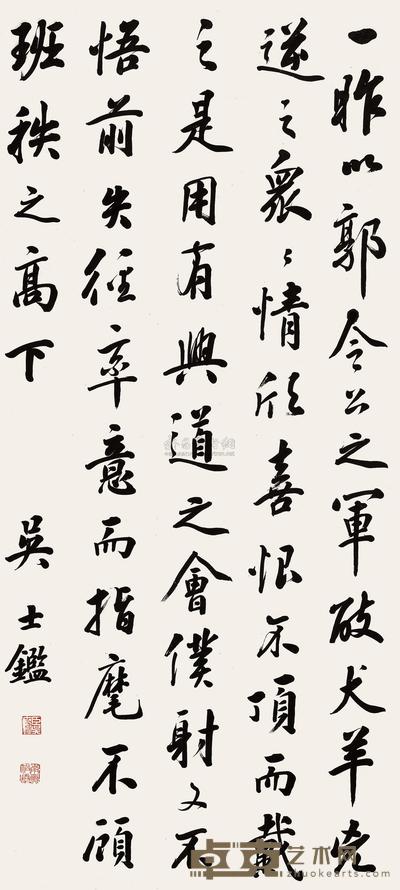 一昨以郭令公之軍破犬羊兇
逆之眾〻情欣喜恨不頂而戴
之是用有興道之會僕射又不
悟前失徑率意而指麾不顧
班秩之高下
吳士鑑
卓克艺术网
zhuokearts.com